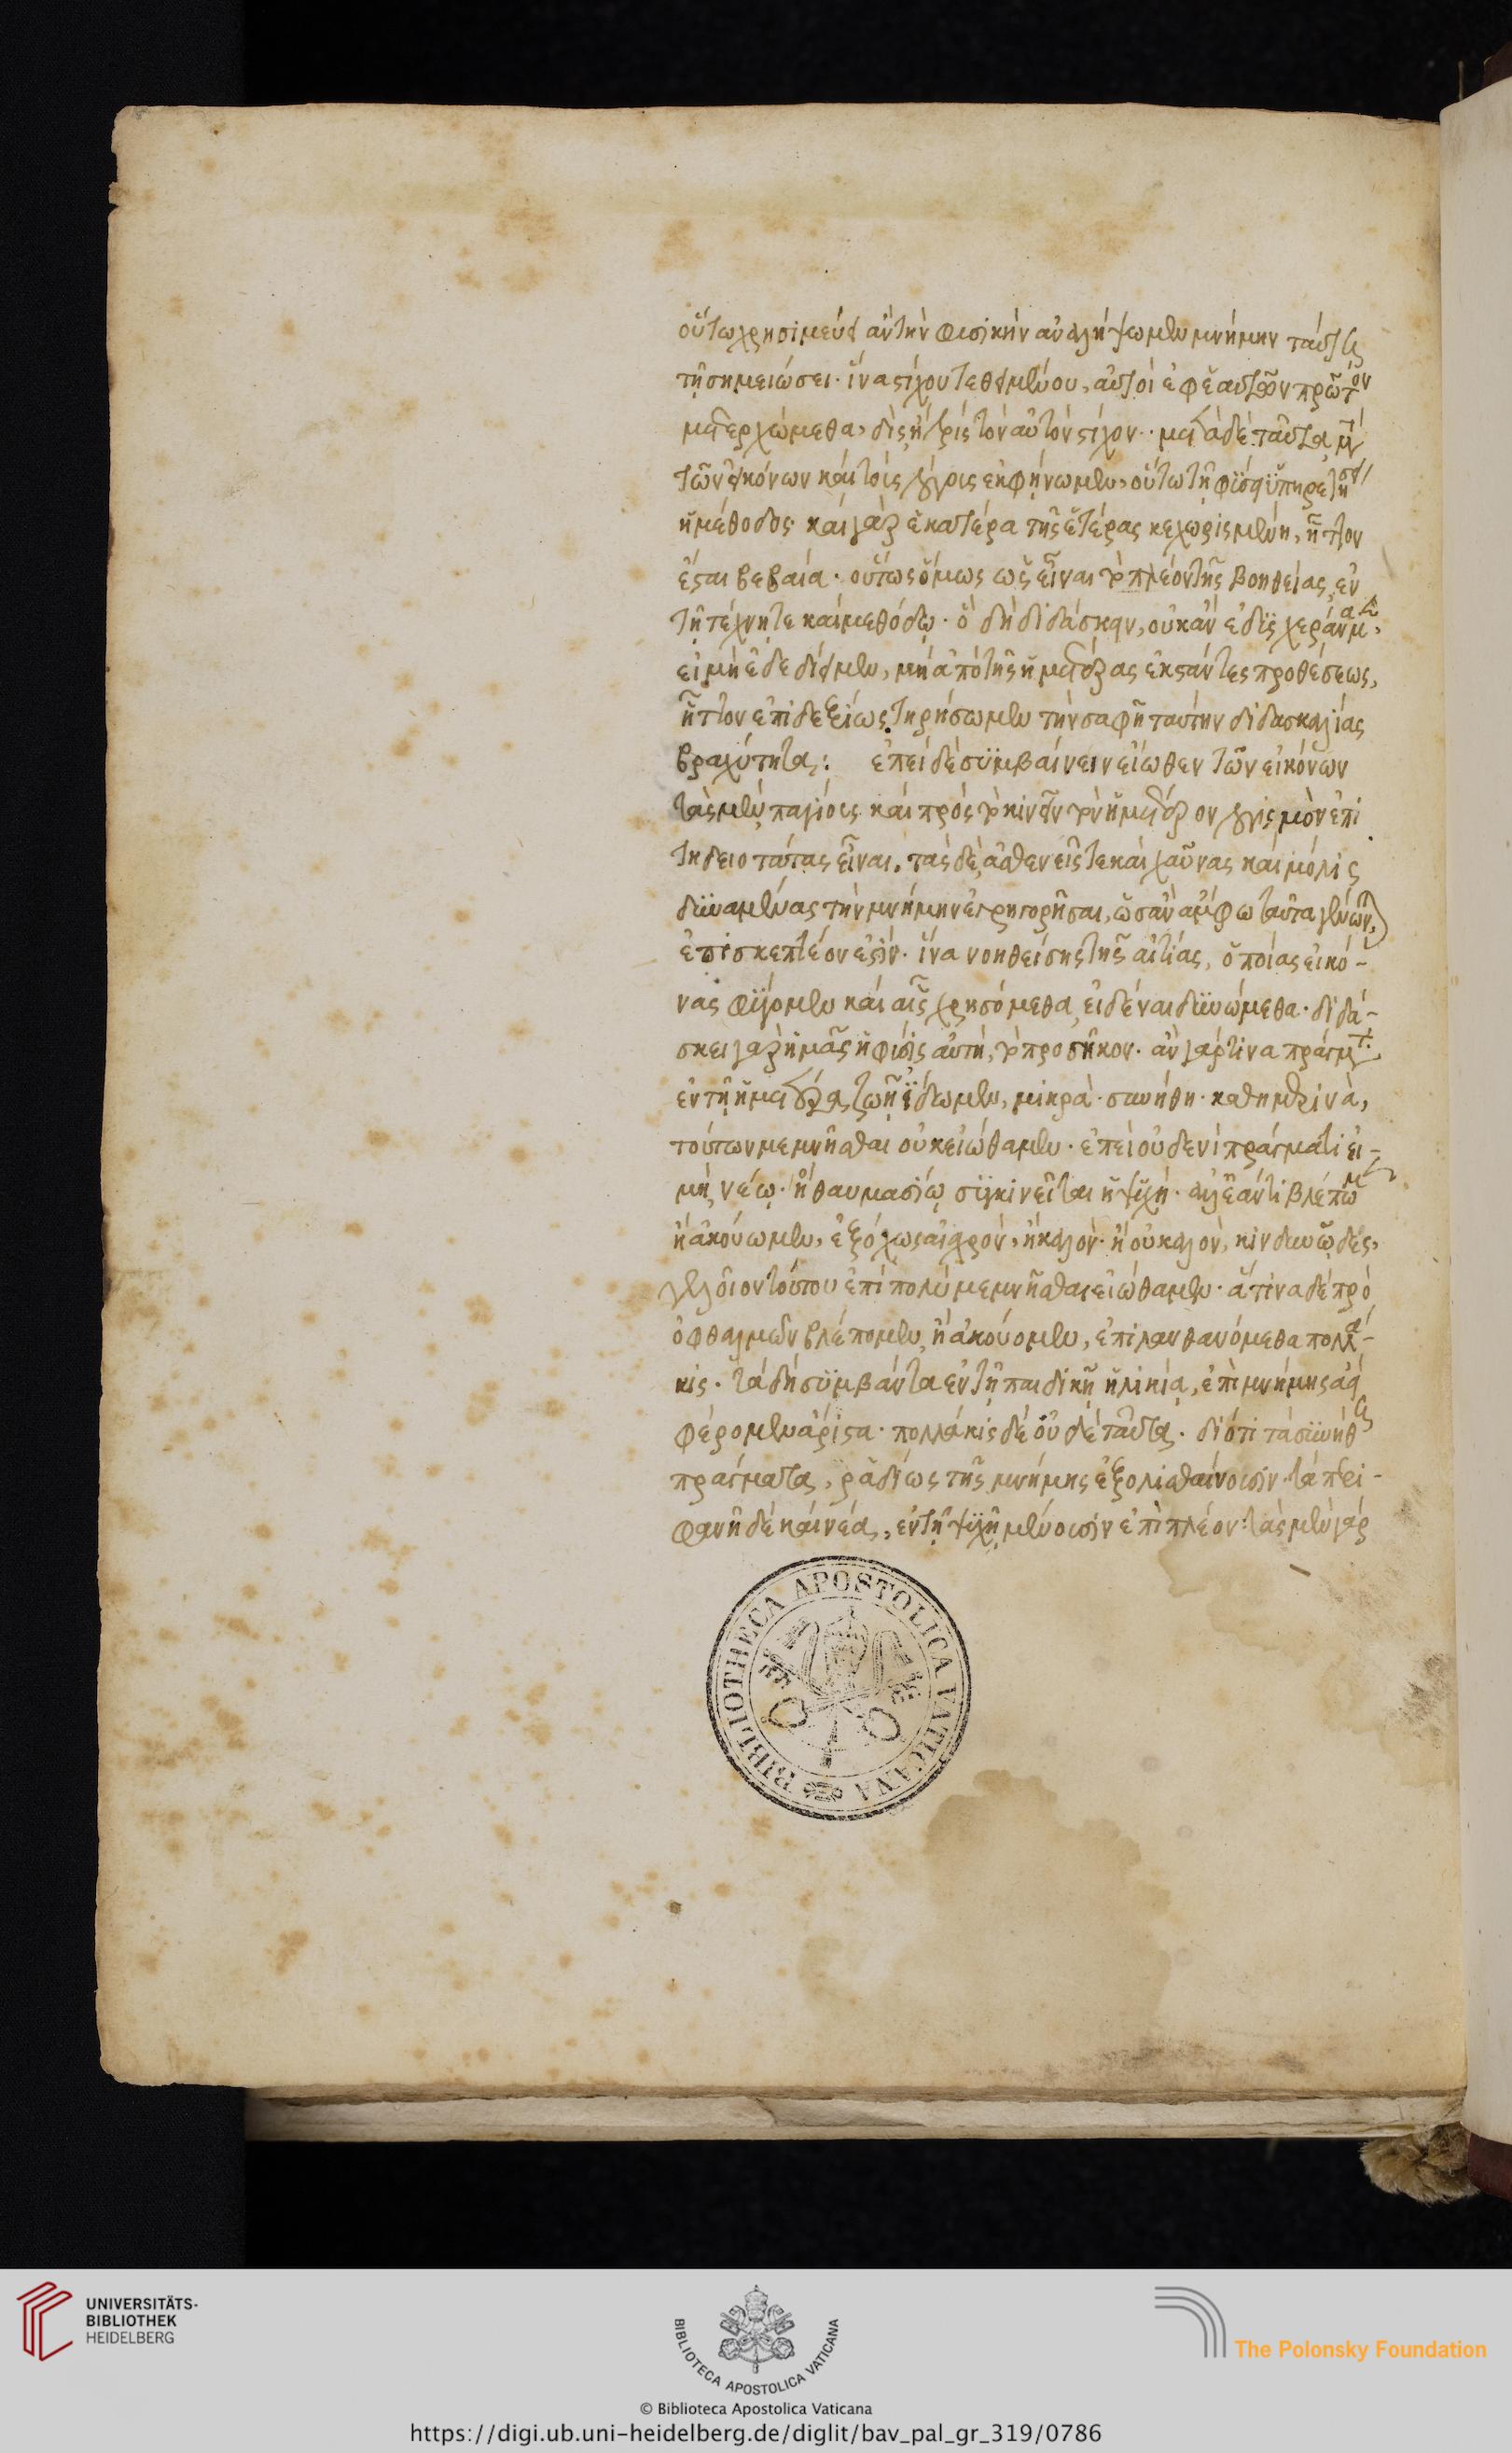 οὕτω χρησιμεύει ἂν τὴν φυσικὴν ἀναλήψωμεν μνήμην ταύτῃ
τῇ σημειώσει· ἵνα στίχου τεθειμένου, αὐτοὶ ἐφ' ἑαυτῶν πρῶτον
μετερχώμεθα, δὶς ἢ τρὶς τὸν αὐτὸν στίχον· μετὰ δὲ ταῦτα μετὰ
τῶν εἰκόνων καὶ τοῖς λόγοις ἐκφήνωμεν, οὕτω τῇ φύσει ὑπηρετήσει
ἡ μέθοδος· καὶ γὰρ ἑκατέρα τῆς ἑτέρας κεχωρισμένη, ἧττον
ἔσται βεβαία· οὕτως ὅμως ὡς εἶναι τὸ πλέον τῆς βοηθείας ἐν
τῇ τέχνῃ τε καὶ μεθόδῳ· ὃ δὴ διδάσκειν, οὐκ ἂν ἐδυσχεράναμεν,
εἰ μὴ ἐδεδίειμεν, μὴ ἀπὸ τῆς ἡμετέρας ἐκστάντες προθέσεως,
ἧττον ἐπιδεξίως τηρήσωμεν τὴν σαφῆ ταύτην διδασκαλίας
βραχύτητα: ἐπεὶ δὲ συμβαίνειν εἴωθεν τῶν εἰκόνων
τὰς μὲν παγίους καὶ πρὸς τὸ κινεῖν τὸν ἡμέτερον λογισμὸν ἐπι
τηδειοτάτας εἶναι, τὰς δὲ ἀσθενεῖς τε καὶ χαύνας καὶ μόλις
δυναμένας τὴν μνήμην ἐγρηγορῆσαι, ὡς ἂν ἄμφω ταῦτα
ἐπισκεπτέον ἐστίν· ἵνα νοηθείσης τῆς αἰτίας, ὁποίας εἰκό-
νας φύγομεν καὶ αἷς χρησόμεθα, εἰδέναι δυνώμεθα· διδά-
σκει γὰρ ἡμᾶς ἡ φύσις αὐτή, τὸ προσῆκον· ἂν γάρ τινα πράγματα
ἐν τῇ ἡμετέρᾳ ζωῇ ἴδωμεν, μικρὰ· συνήθη· καθημερινὰ,
τούτων μεμνῆσθαι οὐκ εἰώθαμεν· ἐπεὶ οὐδενὶ πράγματι εἰ
μὴ νέῳ· ἢ θαυμασίῳ συγκινεῖται ἡ ψυχή· ἀλλ' ἐάν τι βλέπωμεν
ἢ ἀκούωμεν, ἐξόχως αἰσχρὸν, ἢ καλὸν· ἢ οὐ καλὸν, κινδυνῶδες,
γελοῖον τούτου ἐπὶ πολὺ μεμνῆσθαι εἰώθαμεν· ἅτινα δὲ πρὸ
ὀφθαλμῶν βλέπομεν ἢ ἀκούομεν, ἐπιλανθανόμεθα πολλά-
κις· τὰ δὴ συμβάντα ἐν τῇ παιδικῇ ἡλικίᾳ, ἐπὶ μνήμης ἀεὶ
φέρομεν ἄριστα· πολλάκις δὲ οὐδὲ ταῦτα· διότι τὰ συνήθη
πράγματα, ῥᾳδίως τῆς μνήμης ἐξολισθαίνουσιν· τὰ περι-
φανῆ δὲ καὶ νέα, ἐν τῇ ψυχῇ μένουσιν ἐπὶ πλέον· τὰς μὲν γὰρ
BIBLIOTHECA APOSTOLICA VATICANA
UNIVERSITÄTS-
BIBLIOTHEK
HEIDELBERG
BIBLIOTECA APOSTOLICA VATICANA
The Polonsky Foundation
© Biblioteca Apostolica Vaticana
https://digi.ub.uni-heidelberg.de/diglit/bav_pal_gr_319/0786